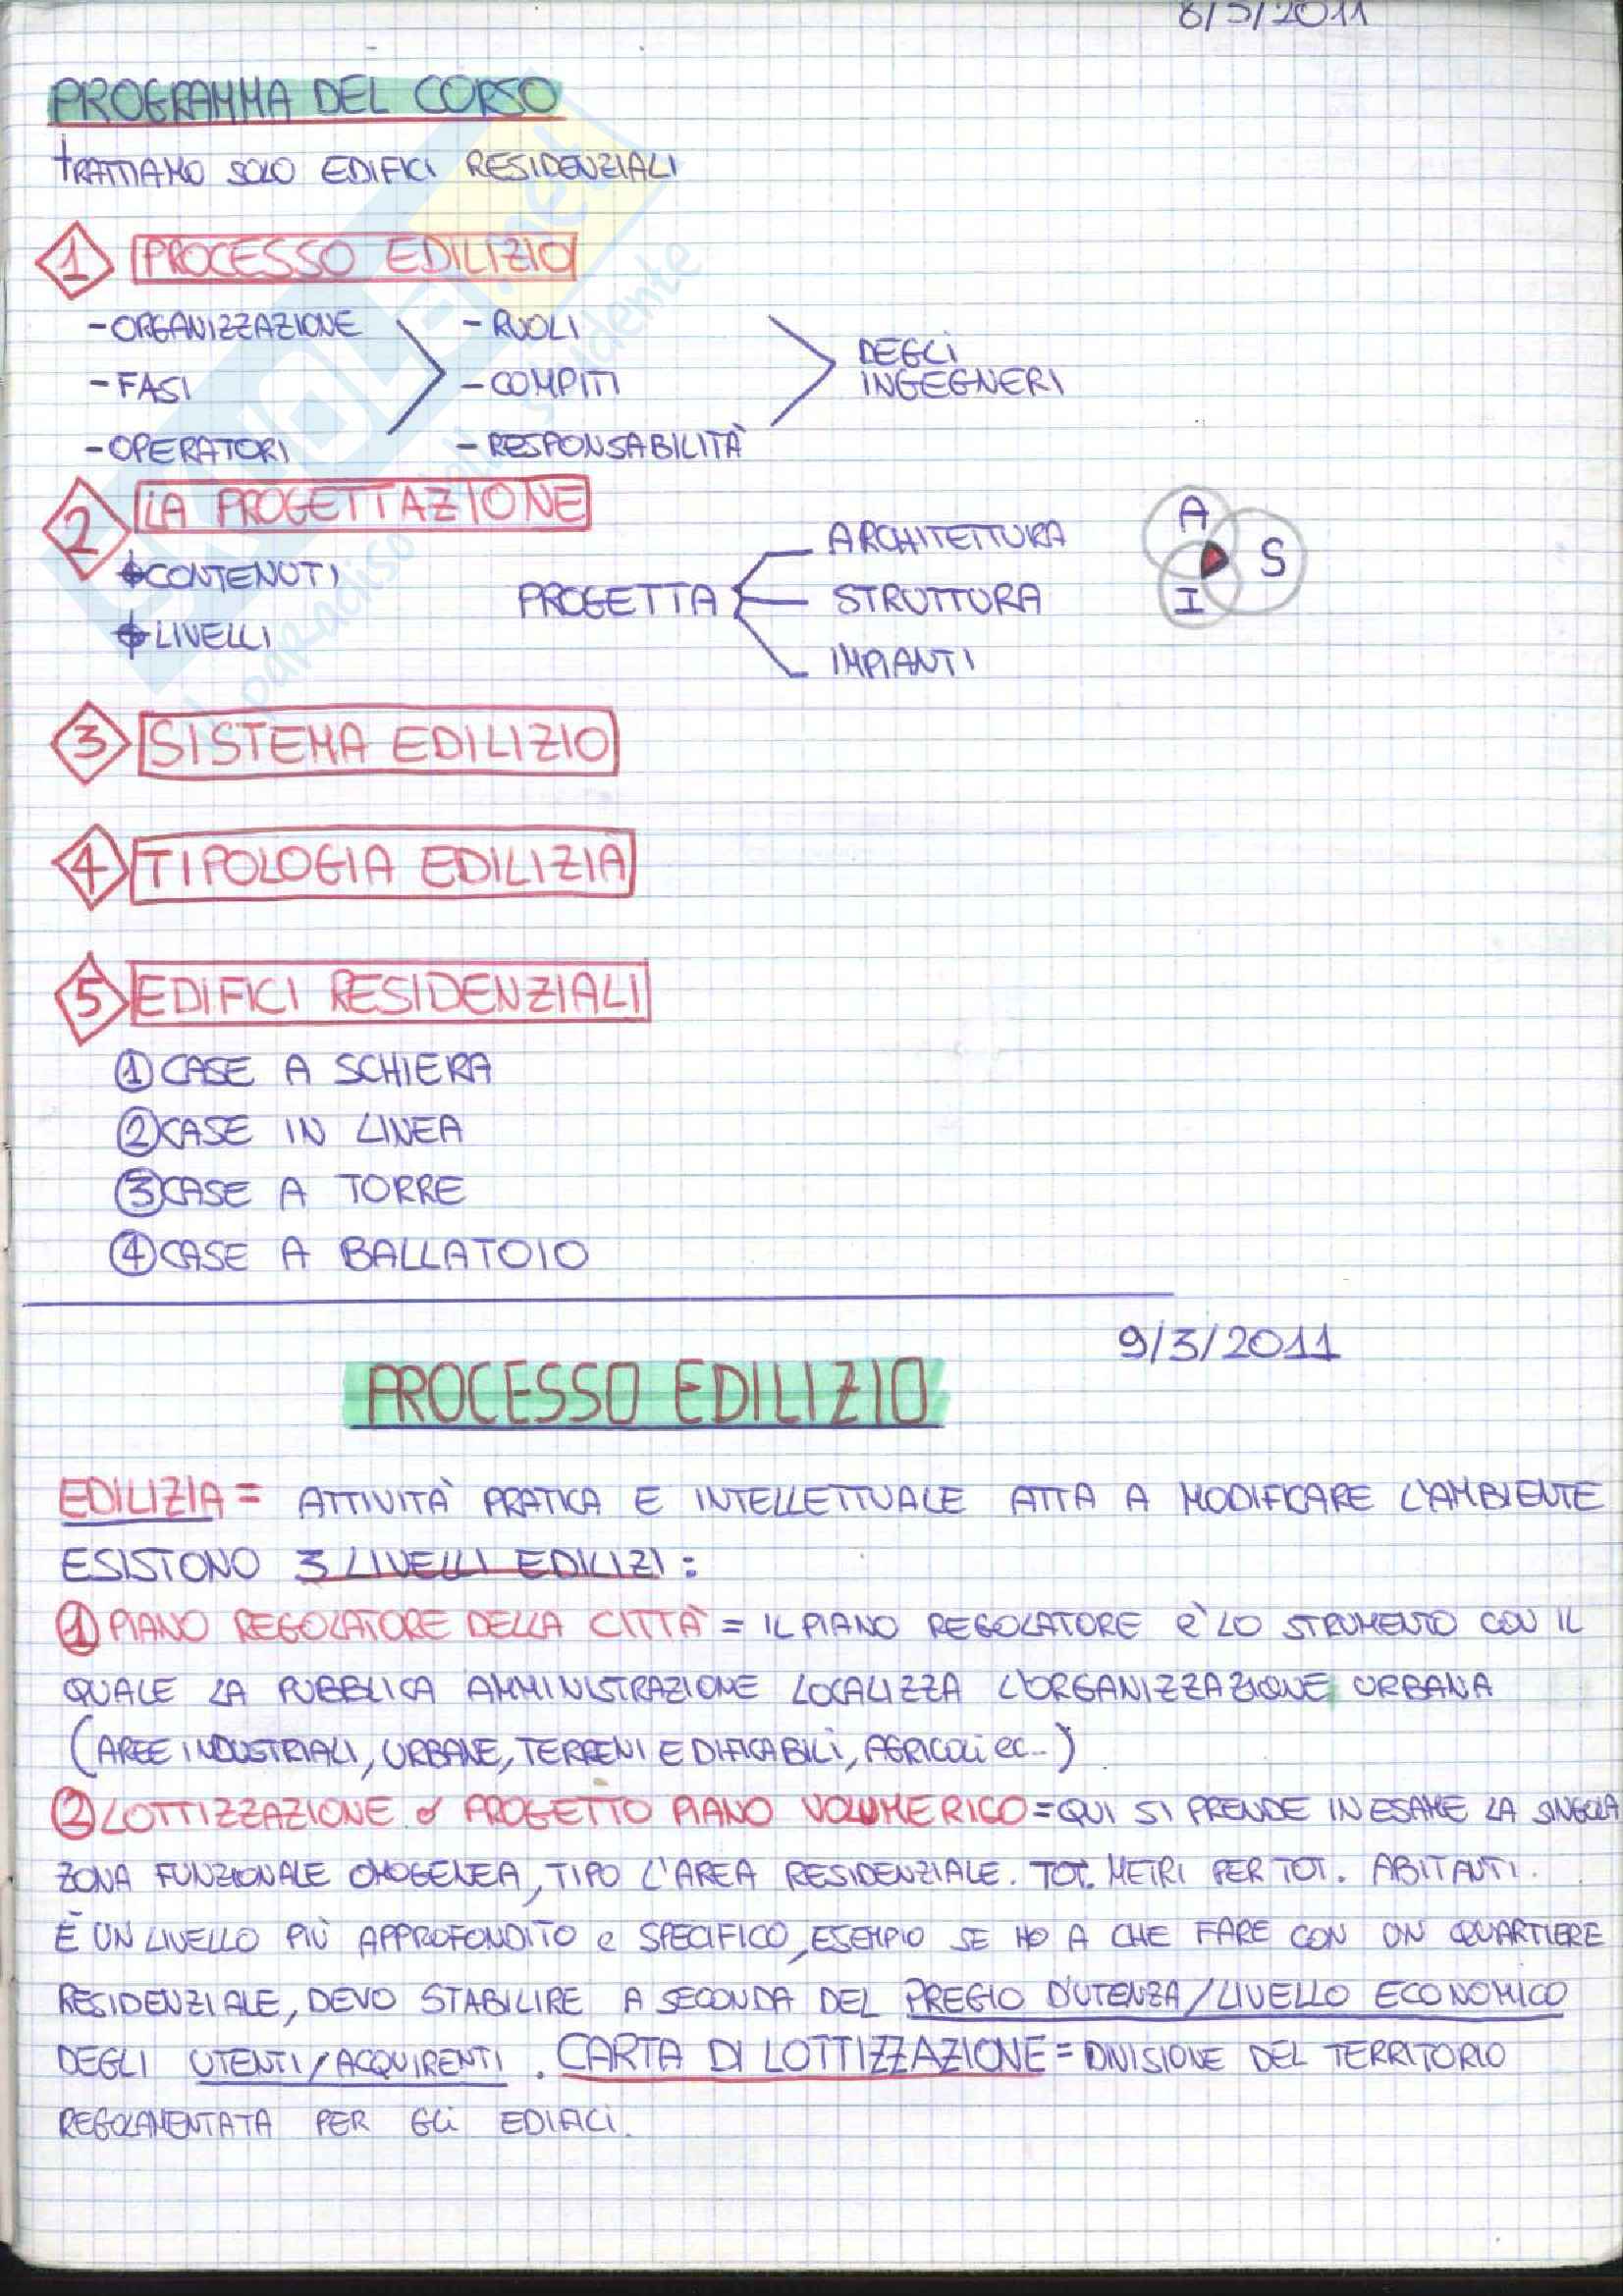 8/3/2011
PROGRAMMA DEL CORSO
TRATTIAMO SOLO EDIFICI RESIDENZIALI
1 PROCESSO EDILIZIO
-ORGANIZZAZIONE -RUOLI
-FASI -COMPITI DEGLI INGEGNERI
-OPERATORI -RESPONSABILITÀ
2 LA PROGETTAZIONE
CONTENUTI
LIVELLI
PROGETTA
ARCHITETTURA
STRUTTURA
IMPIANTI
A
S
I
3 SISTEMA EDILIZIO
4 TIPOLOGIA EDILIZIA
5 EDIFICI RESIDENZIALI
1 CASE A SCHIERA
2 CASE IN LINEA
3 CASE A TORRE
4 CASE A BALLATOIO
9/3/2011
PROCESSO EDILIZIO
EDILIZIA = ATTIVITÀ PRATICA E INTELLETTUALE ATTA A MODIFICARE L'AMBIENTE
ESISTONO 3 LIVELLI EDILIZI:
1 PIANO REGOLATORE DELLA CITTÀ = IL PIANO REGOLATORE È LO STRUMENTO CON IL
QUALE LA PUBBLICA AMMINISTRAZIONE LOCALIZZA L'ORGANIZZAZIONE URBANA
(AREE INDUSTRIALI, URBANE, TERRENI EDIFICABILI, AGRICOLI ec..)
2 LOTTIZZAZIONE o PROGETTO PIANO VOLUMERICO = QUI SI PRENDE IN ESAME LA SINGOLA
ZONA FUNZIONALE OMOGENEA, TIPO L'AREA RESIDENZIALE. TOT. METRI PER TOT. ABITANTI.
È UN LIVELLO PIÙ APPROFONDITO e SPECIFICO, ESEMPIO SE HO A CHE FARE CON UN QUARTIERE
RESIDENZIALE, DEVO STABILIRE A SECONDA DEL PREGIO D'UTENZA/LIVELLO ECONOMICO
DEGLI UTENTI/ACQUIRENTI. CARTA DI LOTTIZZAZIONE = DIVISIONE DEL TERRITORIO
REGOLAMENTATA PER GLI EDIFICI.
SKUOLA.net
il paradiso dello studente